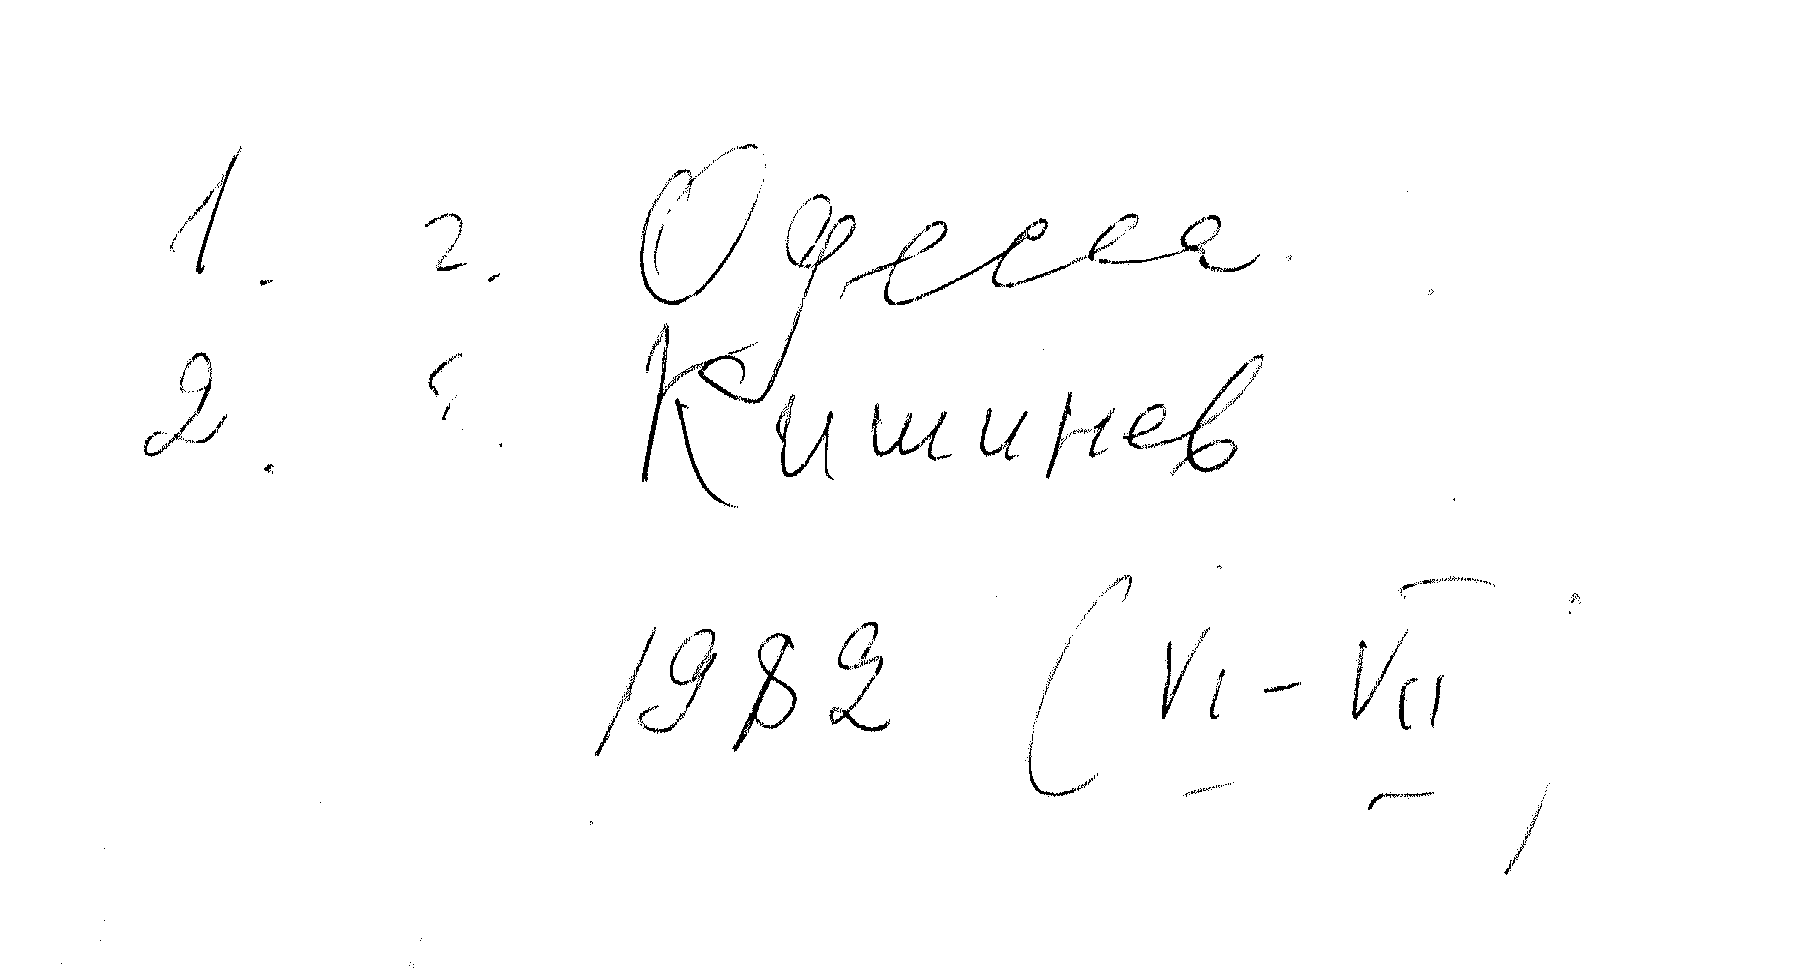 1. г. Одесса.
2. г. Кишинев
1982 (VI - VII)